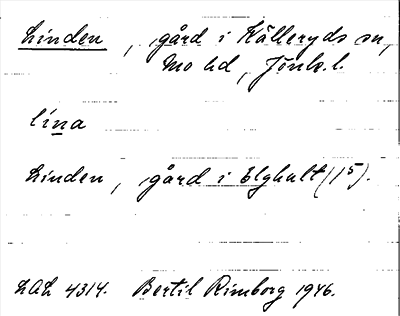 Linden, gård i Kålleryds sn,
Mo hd, Jönk. l.
lína
Linden, gård i Elghult (1⁵).
LAL 4314. Bertil Rimborg 1946.